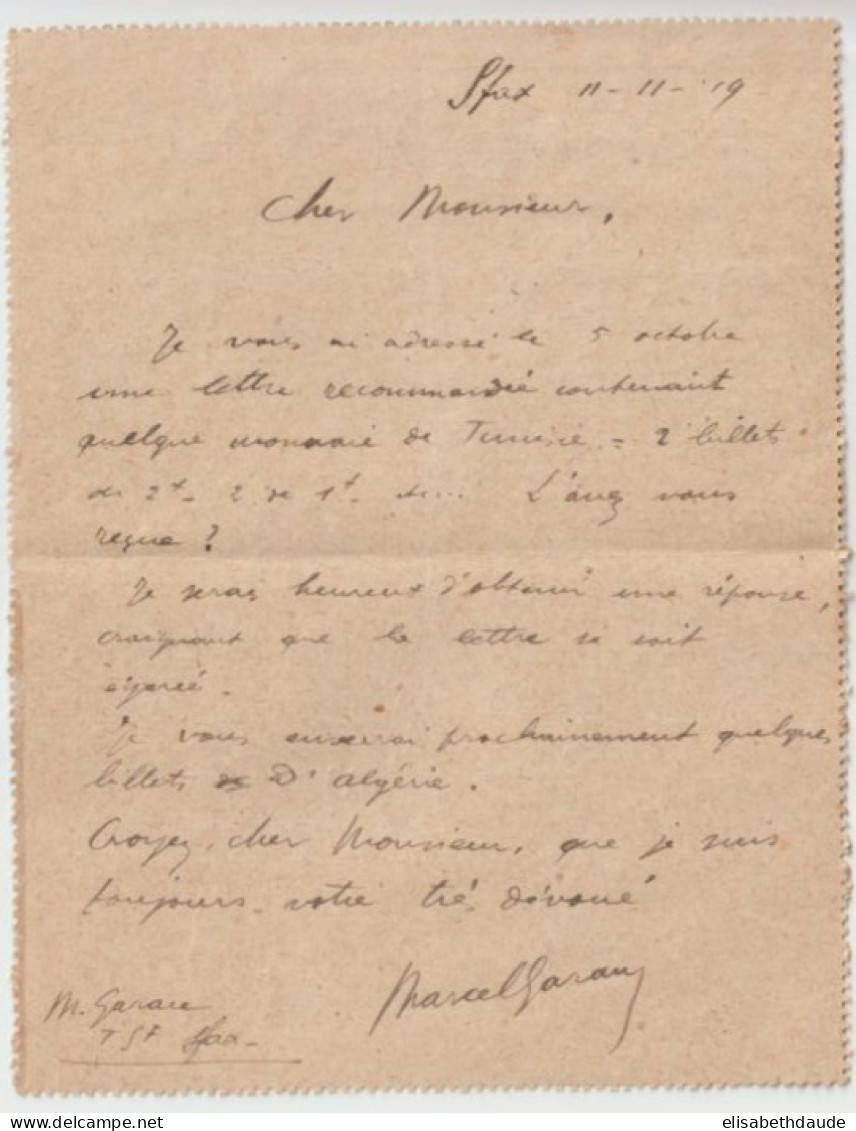 Sfax 11-11-19
Cher Monsieur,
Je vous ai adressé le 5 octobre
une lettre recommandée contenant
quelque monnaie de Tunisie = 2 billets
de 2f - 2 de 1f -
L'avez vous
reçue ?
Je serais heureux d'obtenir une réponse,
craignant que la lettre se soit
égarée.
Je vous enverrai prochainement quelques
billets D' Algérie.
Croyez, cher Monsieur, que je suis
toujours votre très dévoué
Marcel
M.
TSF Sfax -
delcampe.net
elisabethdaude